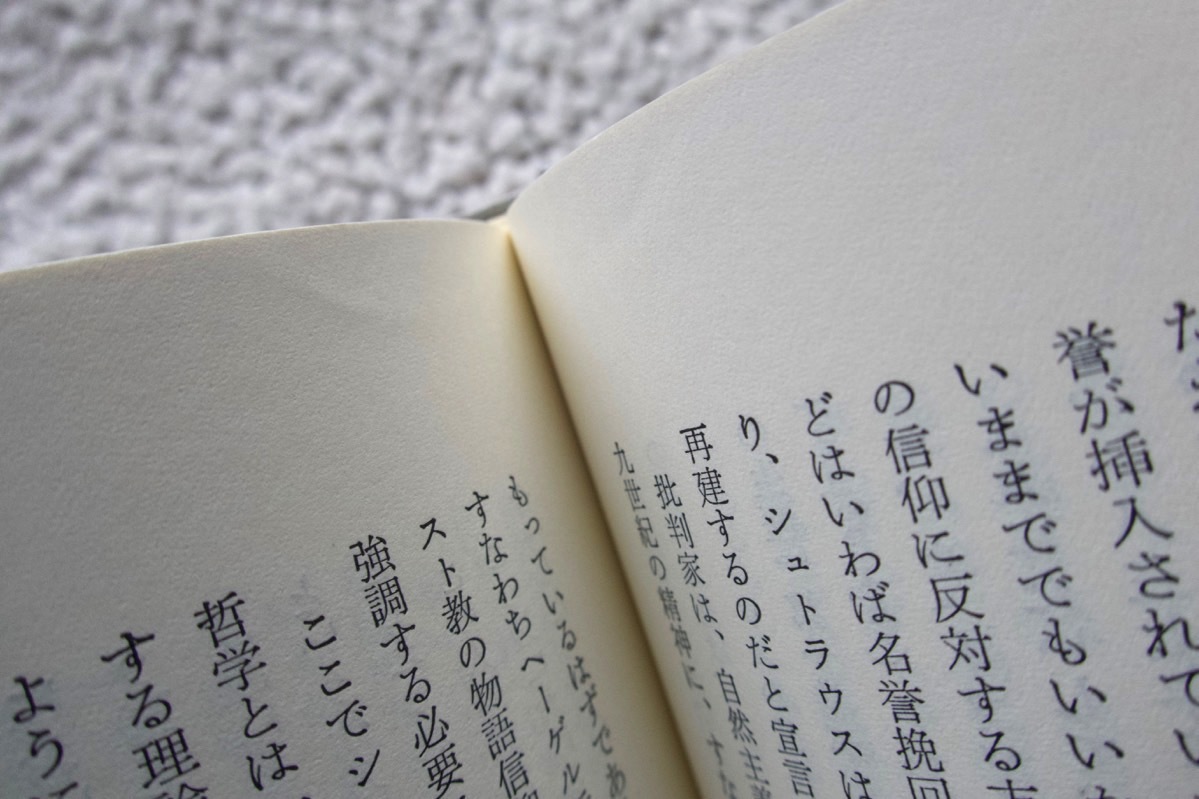 誉が挿入されて
いままでもいい
の信仰に反対する
どはいわば名誉挽回
り、シュトラウスは
再建するのだと宣言
批判家は、自然主義
九世紀の精神に、すな
もっているはずであ
すなわちヘーゲル
スト教の物語信仰
強調する必要
ここでシ
哲学とは
する理論
よう